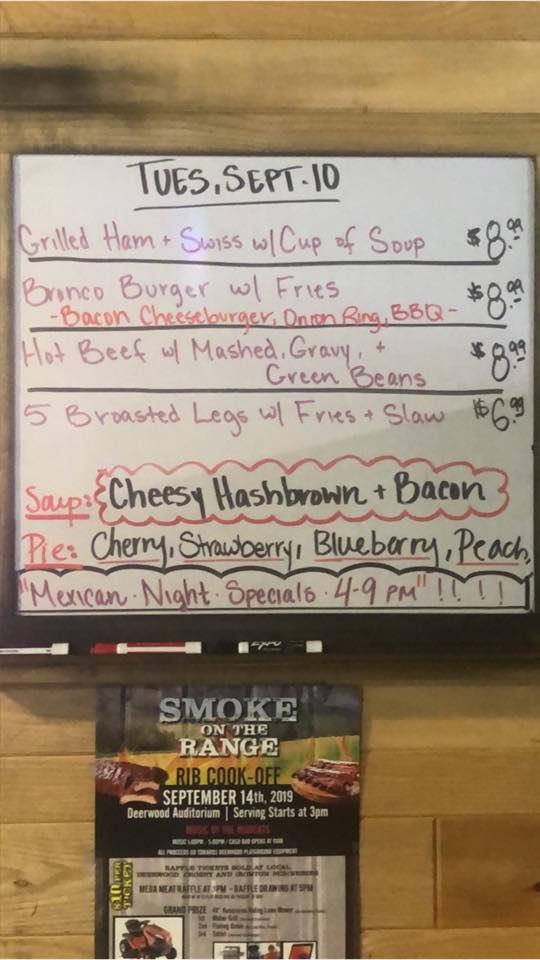 TUES, SEPT. 10
Grilled Ham + Swiss w/ Cup of Soup $8.99
Bronco Burger w/ Fries $8.99
- Bacon Cheeseburger, Onion Ring, BBQ -
Hot Beef w/ Mashed, Gravy, + $8.99
Green Beans
5 Broasted Legs w/ Fries + Slaw $6.99
Soup: Cheesy Hashbrown + Bacon
Pie: Cherry, Strawberry, Blueberry, Peach
"Mexican · Night · Specials · 4-9 PM" !! ! !
EXPO
SMOKE
ON THE
RANGE
RIB COOK-OFF
SEPTEMBER 14th, 2019
Deerwood Auditorium | Serving Starts at 3pm
MUSIC BY THE
ALL PROCEEDS GO TOWARDS DEERWOOD PLAYGROUND EQUIPMENT
$10 PER TICKET
RAFFLE TICKETS SOLD AT LOCAL
DEERWOOD, CROSBY AND IRONTON
MEGA MEAT RAFFLE AT 3PM - RAFFLE DRAWING AT 5PM
GRAND PRIZE
1st
2nd
3rd